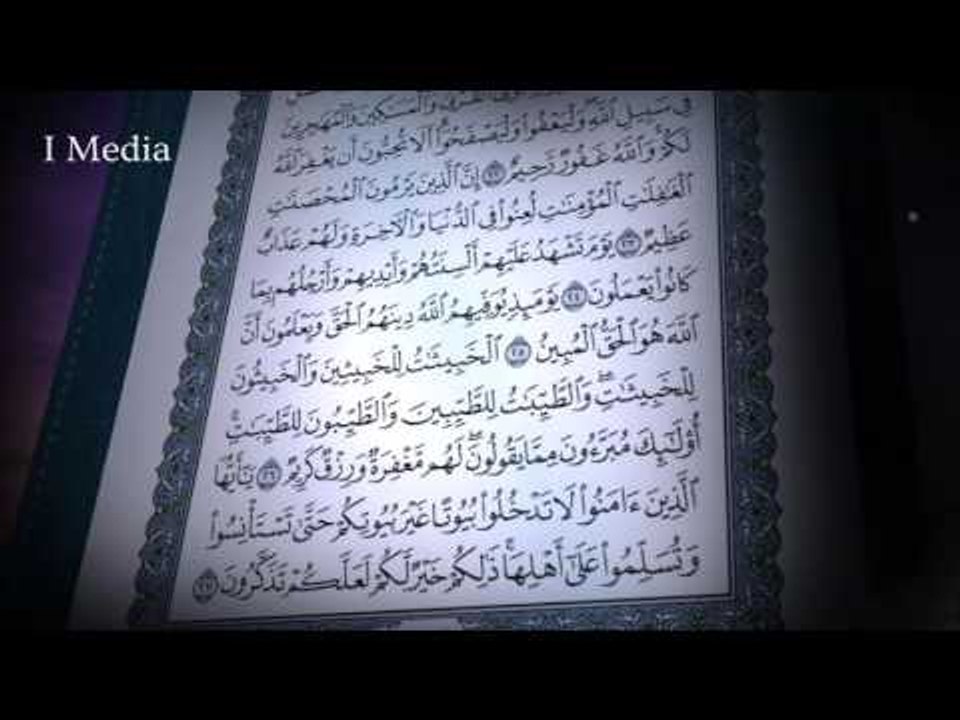 I Media
وَالْمَسَٰكِينَ وَالْمُهَٰجِرِينَ
فِى سَبِيلِ اللَّهِ وَلْيَعْفُوا۟ وَلْيَصْفَحُوٓا۟ أَلَا تُحِبُّونَ أَن يَغْفِرَ اللَّهُ
لَكُمْ وَاللَّهُ غَفُورٌ رَّحِيمٌ ٢٢ إِنَّ الَّذِينَ يَرْمُونَ الْمُحْصَنَٰتِ
الْغَٰفِلَٰتِ الْمُؤْمِنَٰتِ لُعِنُوا۟ فِى الدُّنْيَا وَالْءَاخِرَةِ وَلَهُمْ عَذَابٌ
عَظِيمٌ ٢٣ يَوْمَ تَشْهَدُ عَلَيْهِمْ أَلْسِنَتُهُمْ وَأَيْدِيهِمْ وَأَرْجُلُهُم بِمَا
كَانُوا۟ يَعْمَلُونَ ٢٤ يَوْمَئِذٍ يُوَفِّيهِمُ اللَّهُ دِينَهُمُ الْحَقَّ وَيَعْلَمُونَ أَنَّ
اللَّهَ هُوَ الْحَقُّ الْمُبِينُ ٢٥ الْخَبِيثَٰتُ لِلْخَبِيثِينَ وَالْخَبِيثُونَ
لِلْخَبِيثَٰتِ ۖ وَالطَّيِّبَٰتُ لِلطَّيِّبِينَ وَالطَّيِّبُونَ لِلطَّيِّبَٰتِ ۚ
أُو۟لَٰٓئِكَ مُبَرَّءُونَ مِمَّا يَقُولُونَ ۖ لَهُم مَّغْفِرَةٌ وَرِزْقٌ كَرِيمٌ ٢٦ يَٰٓأَيُّهَا
الَّذِينَ ءَامَنُوا۟ لَا تَدْخُلُوا۟ بُيُوتًا غَيْرَ بُيُوتِكُمْ حَتَّىٰ تَسْتَأْنِسُوا۟
وَتُسَلِّمُوا۟ عَلَىٰٓ أَهْلِهَا ۚ ذَٰلِكُمْ خَيْرٌ لَّكُمْ لَعَلَّكُمْ تَذَكَّرُونَ ٢٧